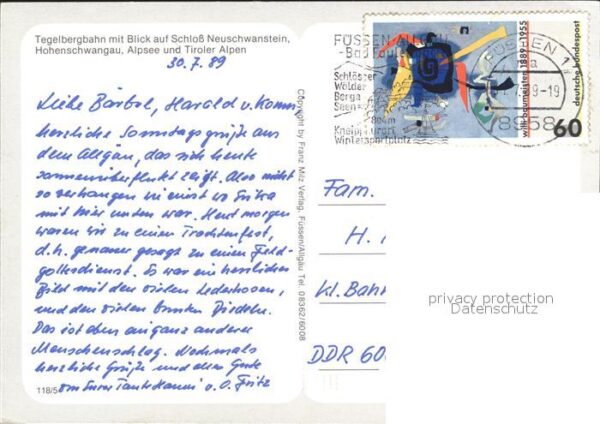 Tegelbergbahn mit Blick auf Schloß Neuschwanstein,
Hohenschwangau, Alpsee und Tiroler Alpen
30.7.89
Liebe Bärbel, Harald u.
herzliche Sonntagsgrüße aus
dem Allgäu, das sich heute
sonnenüberflutet zeigt. Also nicht
so verhangen wie einst wo Erika
mit hier unten war. Heut morgen
waren wir zu einem Trachtenfest,
d.h. genauer gesagt zu einem Feld-
gottesdienst. Es war ein herrliches
Bild mit den vielen Lederhosen,
und den vielen bunten Dirndeln.
Das ist eben ein ganz anderer
Menschenschlag. Nochmals
herzliche Grüße und alles Gute
von Eurer Tante Hanni u. O. Fritz
118/5
Copyright by Franz Milz Verlag, Füssen/Allgäu Tel. 08362/6008
FÜSSEN
- Bad Faulen
Schlösser
Wälder
Berge
Seen
804m
Kneippkurort
Wintersportplatz
FÜSSEN 1
-19
8958
willi baumeister 1889-1955
deutsche bundespost
60
Fam.
H.
Kl. Bahn
DDR 60
privacy protection
Datenschutz